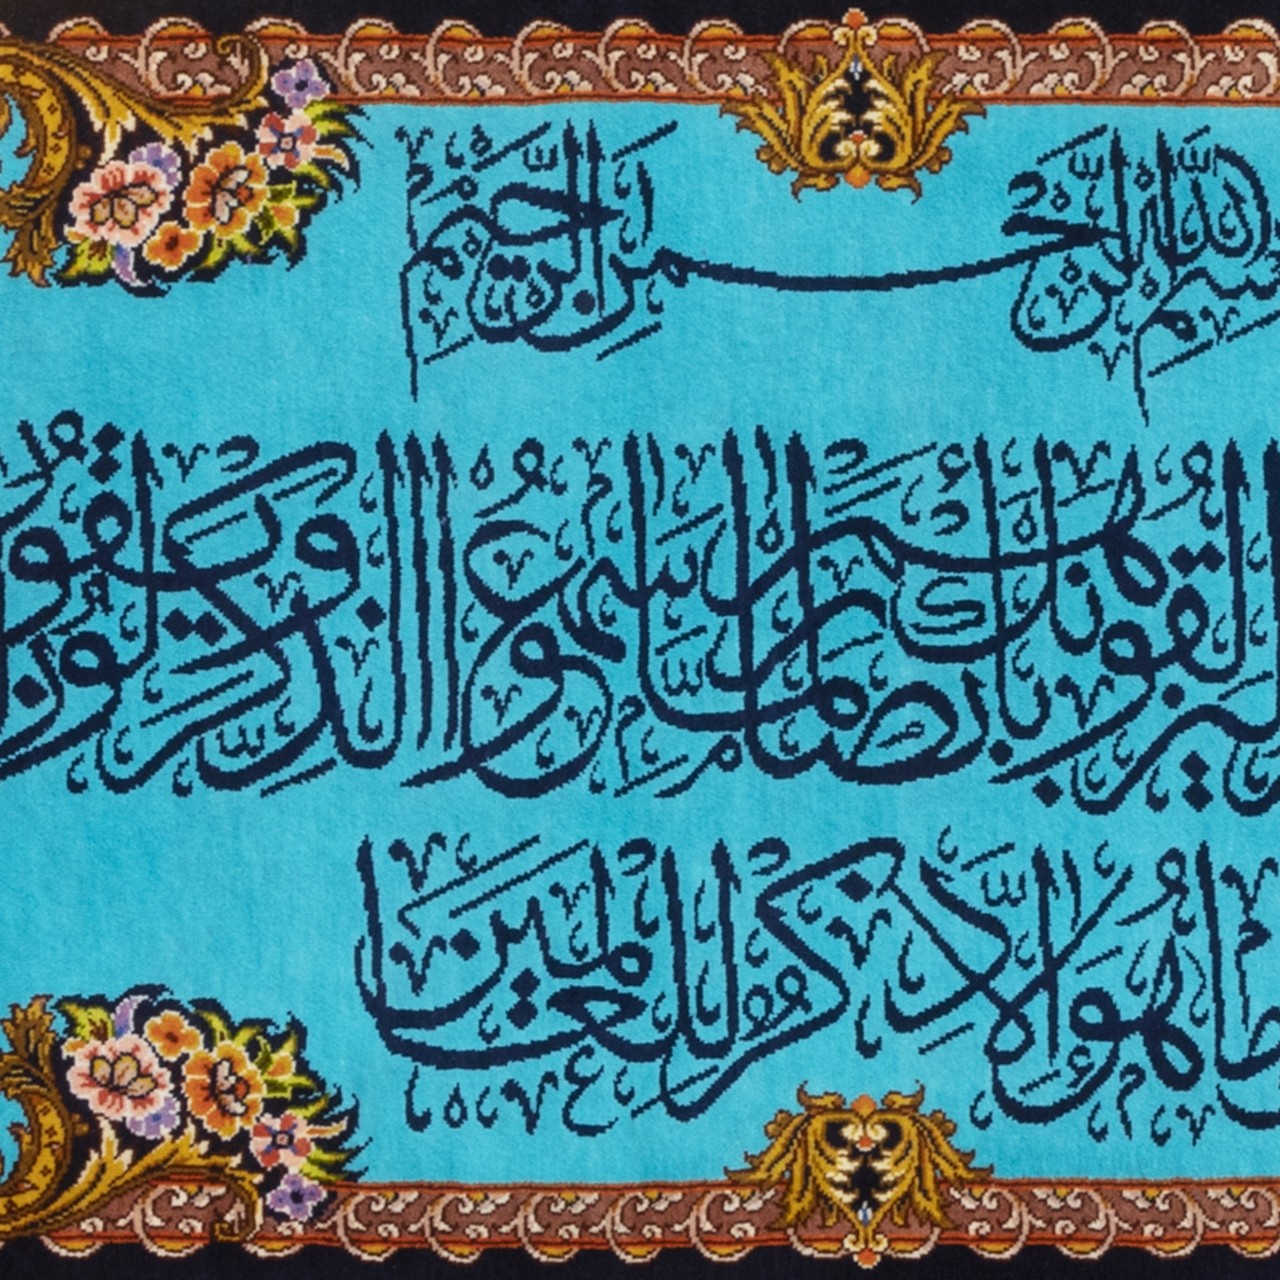 بسم الله الرحمن الرحيم
ليزلقونك بأبصارهم لما سمعوا الذكر ويقولون
ما هو إلا ذكر للعلمين